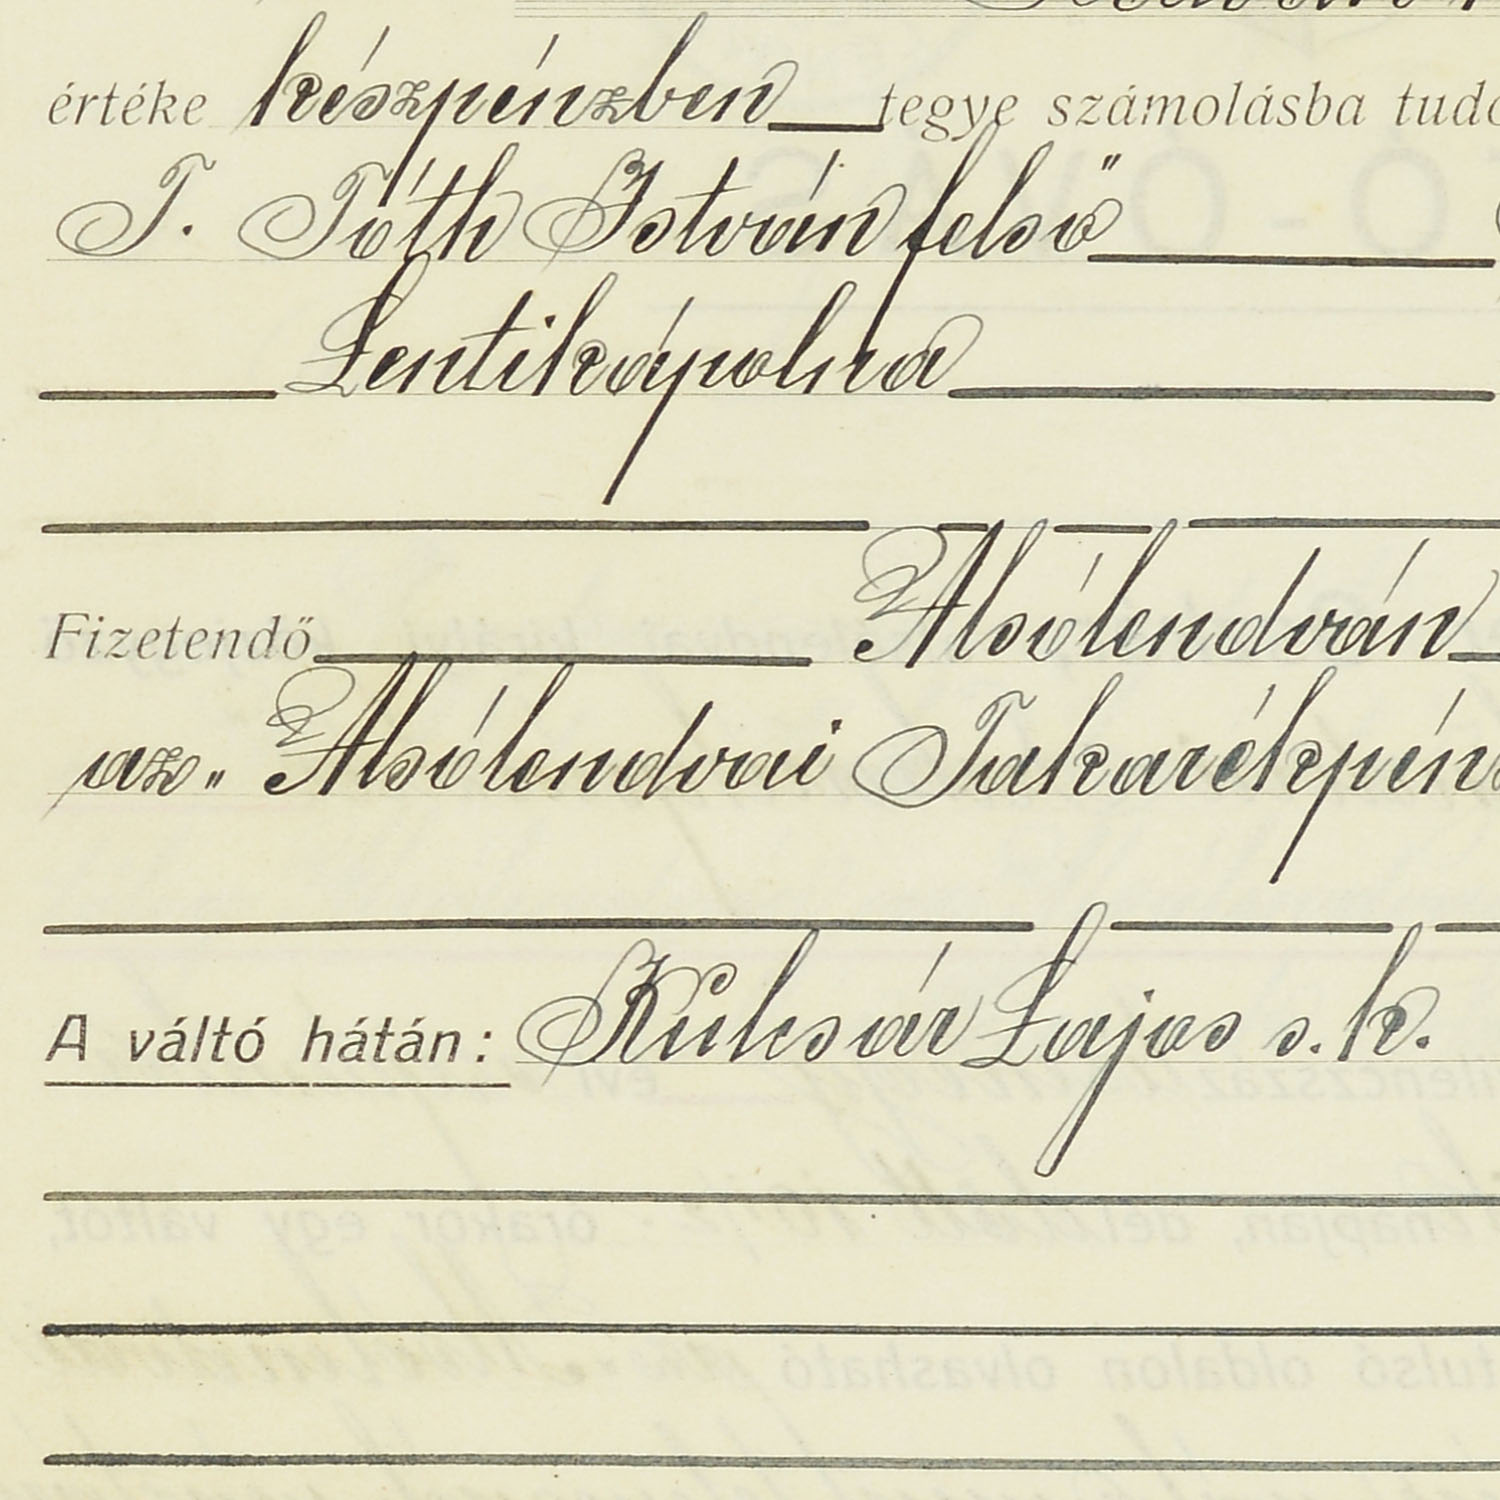 értéke készpénzben tegye számolásba
T. Tóth István felső
Lentikápolna
Fizetendő Alsólendván
az „Alsólendvai
A váltó hátán: Kulcsár Lajos s. k.